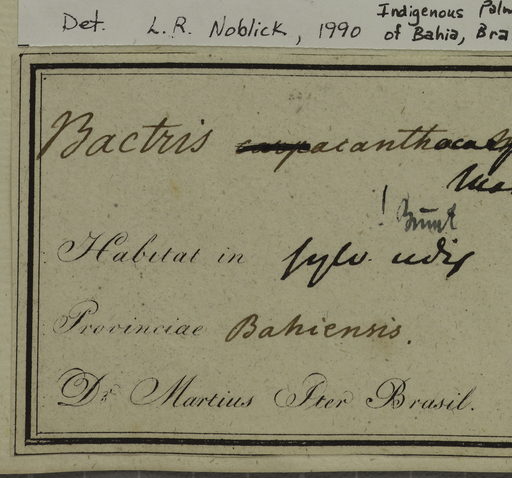 Indigenous Palm
Det. L. R. Noblick, 1990 of Bahia, Bra
Bactris acanthocarp
Mar
!
Habitat in sylv. udis
Provinciae Bahiensis.
Dr. Martius Iter Brasil.